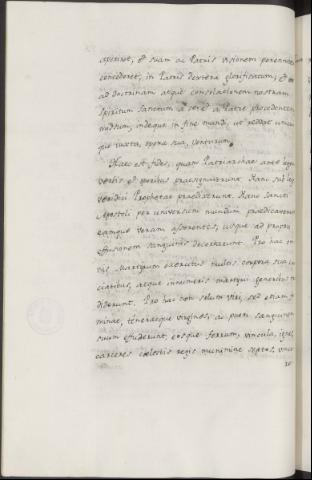 aperiret, & suam ac Patris visionem perennem
concederet, in Patris dextera glorificatum, &
ad doctrinam atque consolationem nostram
Spiritum Sanctum a se & a Patre procedentem
inde que in fine mundi, ut reddat
que iuxta opera sua, venturum.
Haec est fides, quam Patriarchae ante
verbis et operibus praesignaverunt. Hanc
veridici Prophetae praedixerunt. Hanc Sancti
Apostoli per universum mundum praedicaverunt
eamque veram asserentes, usque ad propriam
effusionem sanguinis decertarunt. Pro hac
Martyrum exercitus multis corpora sua
ciatibus, atque innumeris martyrii generibus
diderunt. Pro hac non solum viri, sed etiam
minae, teneraeque virgines, ac pueri sanguinem
suum effuderunt, eosque ferrum, vincula, ignes
carceres coelestis regis munimine septos,